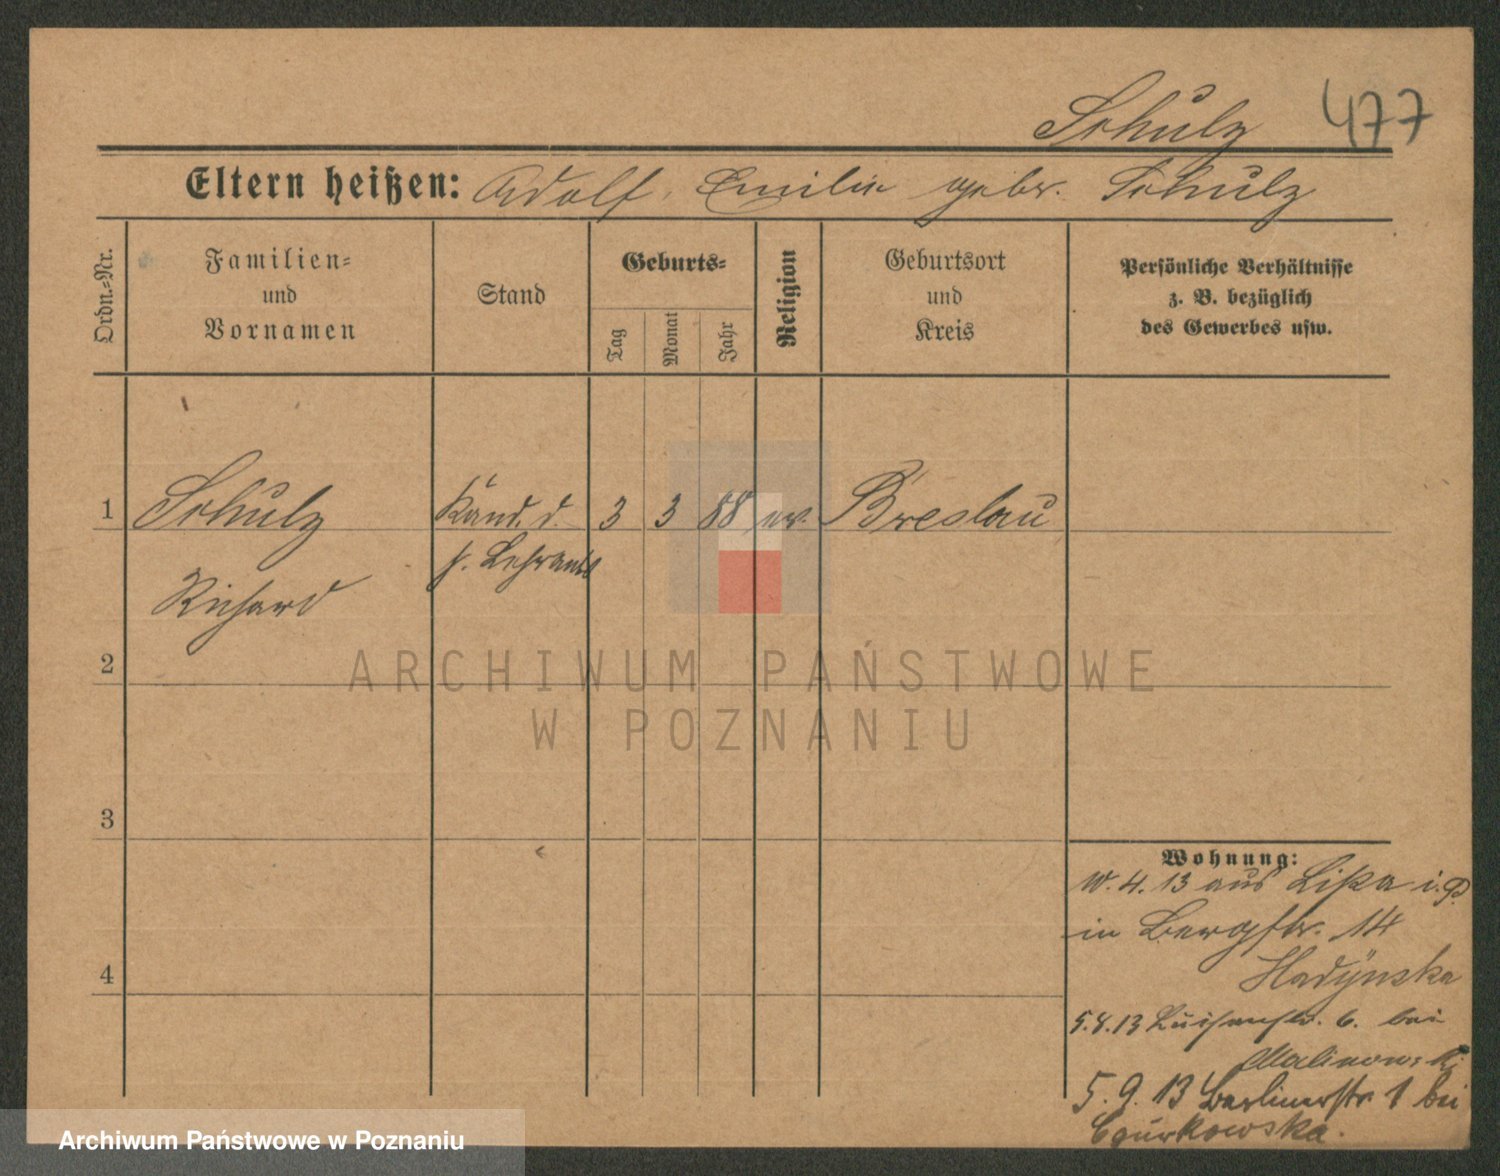 Schulz 477
Eltern heißen: Adolf, Emilie gebr. Schulz
Ordn.=Nr.
Familien=
und
Vornamen
Stand
Geburts=
Tag
Monat
Jahr
Religion
Geburtsort
und
Kreis
Persönliche Verhältnisse
z. B. bezüglich
des Gewerbes usw.
1 Schulz Kand. d. 3 3 88 ev. Breslau
h. Lehramts
Richard
2
3
4
Wohnung:
4. 13 aus Lissa i. P.
in Bergstr. 14
5. 13 Luisenstr. 6. bei
Malinowski
5. 9. 13 Berlinerstr 1 bei
ARCHIWUM PAŃSTWOWE
W POZNANIU
Archiwum Państwowe w Poznaniu